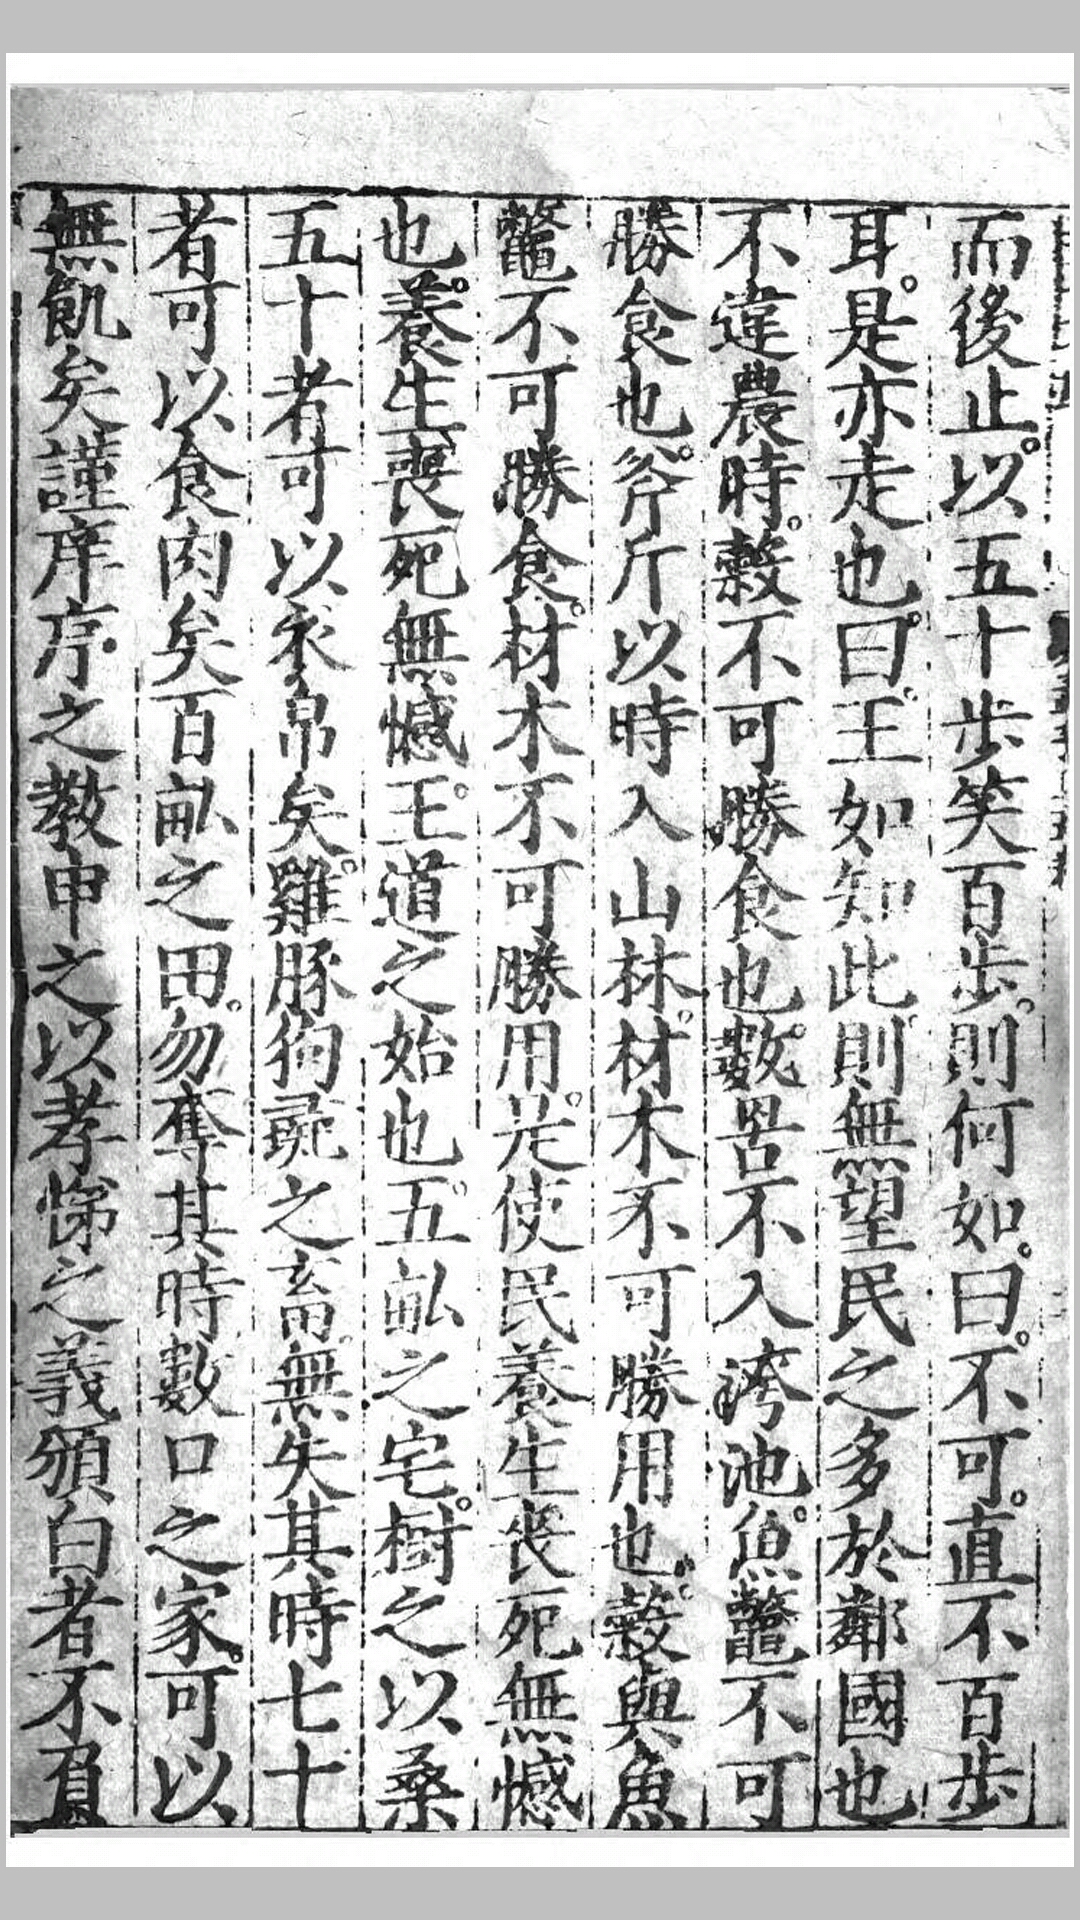 而後止。以五十歩笑百歩。則何如。曰。不可。直不百歩
耳。是亦走也。曰。王。如知此。則無望民之多於鄰國也
不違農時。穀不可勝食也。數罟不入洿池。魚鼈不可
勝食也。斧斤以時入山林。材木不可勝用也。穀與魚
鼈不可勝食。材木不可勝用。是使民養生喪死無憾
也。養生喪死無憾。王道之始也。五畒之宅。樹之以桑
五十者可以衣帛矣。雞豚狗彘之畜。無失其時七十
者可以食肉矣百畒之田。勿奪其時數口之家。可以
無飢矣謹庠序之教申之以孝悌之義頒白者不負